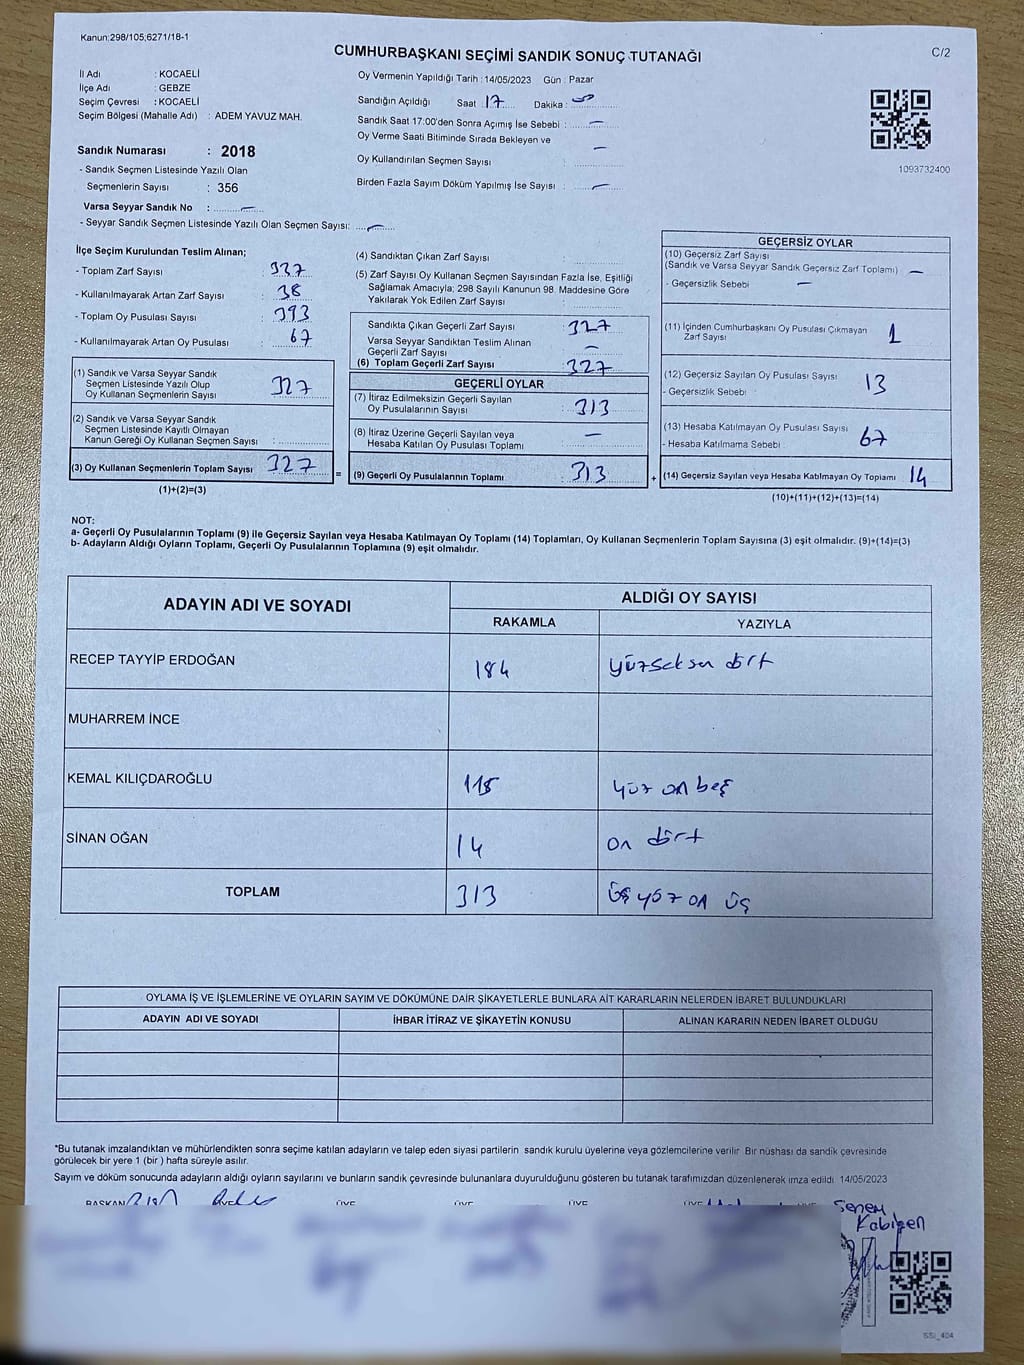 Kanun:298/105,6271/18-1
CUMHURBAŞKANI SEÇİMİ SANDIK SONUÇ TUTANAĞI
C/2
İl Adı : KOCAELİ
İlçe Adı : GEBZE
Seçim Çevresi : KOCAELİ
Seçim Bölgesi (Mahalle Adı) : ADEM YAVUZ MAH.
Sandık Numarası : 2018
- Sandık Seçmen Listesinde Yazılı Olan
Seçmenlerin Sayısı : 356
Varsa Seyyar Sandık No : —
- Seyyar Sandık Seçmen Listesinde Yazılı Olan Seçmen Sayısı: —
Oy Vermenin Yapıldığı Tarih : 14/05/2023 Gün : Pazar
Sandığın Açıldığı Saat 17 Dakika :
Sandık Saat 17:00'den Sonra Açımış İse Sebebi : —
Oy Verme Saati Bitiminde Sırada Bekleyen ve —
Oy Kullandırılan Seçmen Sayısı :
Birden Fazla Sayım Döküm Yapılmış İse Sayısı : —
1093732400
İlçe Seçim Kurulundan Teslim Alınan;
- Toplam Zarf Sayısı : 337
- Kullanılmayarak Artan Zarf Sayısı : 38
- Toplam Oy Pusulası Sayısı : 393
- Kullanılmayarak Artan Oy Pusulası : 67
(1) Sandık ve Varsa Seyyar Sandık
Seçmen Listesinde Yazılı Olup
Oy Kullanan Seçmenlerin Sayısı : 327
(2) Sandık ve Varsa Seyyar Sandık
Seçmen Listesinde Kayıtlı Olmayan
Kanun Gereği Oy Kullanan Seçmen Sayısı :
(3) Oy Kullanan Seçmenlerin Toplam Sayısı 327 =
(1)+(2)=(3)
(4) Sandıktan Çıkan Zarf Sayısı :
(5) Zarf Sayısı Oy Kullanan Seçmen Sayısından Fazla İse, Eşitliği
Sağlamak Amacıyla; 298 Sayılı Kanunun 98. Maddesine Göre
Yakılarak Yok Edilen Zarf Sayısı :
Sandıkta Çıkan Geçerli Zarf Sayısı : 327
Varsa Seyyar Sandıktan Teslim Alınan
Geçerli Zarf Sayısı : —
(6) Toplam Geçerli Zarf Sayısı : 327
GEÇERLİ OYLAR
(7) İtiraz Edilmeksizin Geçerli Sayılan
Oy Pusulalarının Sayısı : 313
(8) İtiraz Üzerine Geçerli Sayılan veya
Hesaba Katılan Oy Pusulası Toplamı : —
(9) Geçerli Oy Pusulalarının Toplamı : 313 +
GEÇERSİZ OYLAR
(10) Geçersiz Zarf Sayısı
(Sandık ve Varsa Seyyar Sandık Geçersiz Zarf Toplamı) —
- Geçersizlik Sebebi : —
(11) İçinden Cumhurbaşkanı Oy Pusulası Çıkmayan
Zarf Sayısı : 1
(12) Geçersiz Sayılan Oy Pusulası Sayısı : 13
- Geçersizlik Sebebi :
(13) Hesaba Katılmayan Oy Pusulası Sayısı : 67
- Hesaba Katılmama Sebebi :
(14) Geçersiz Sayılan veya Hesaba Katılmayan Oy Toplamı 14
(10)+(11)+(12)+(13)=(14)
NOT:
a- Geçerli Oy Pusulalarının Toplamı (9) ile Geçersiz Sayılan veya Hesaba Katılmayan Oy Toplamı (14) Toplamları, Oy Kullanan Seçmenlerin Toplam Sayısına (3) eşit olmalıdır. (9)+(14)=(3)
b- Adayların Aldığı Oyların Toplamı, Geçerli Oy Pusulalarının Toplamına (9) eşit olmalıdır.
ADAYIN ADI VE SOYADI
ALDIĞI OY SAYISI
RAKAMLA YAZIYLA
RECEP TAYYİP ERDOĞAN 184 yüzseksen dört
MUHARREM İNCE
KEMAL KILIÇDAROĞLU 115 yüz on beş
SİNAN OĞAN 14 on dört
TOPLAM 313 üç yüz on üç
OYLAMA İŞ VE İŞLEMLERİNE VE OYLARIN SAYIM VE DÖKÜMÜNE DAİR ŞİKAYETLERLE BUNLARA AİT KARARLARIN NELERDEN İBARET BULUNDUKLARI
ADAYIN ADI VE SOYADI İHBAR İTİRAZ VE ŞİKAYETİN KONUSU ALINAN KARARIN NEDEN İBARET OLDUĞU
*Bu tutanak imzalandıktan ve mühürlendikten sonra seçime katılan adayların ve talep eden siyasi partilerin sandık kurulu üyelerine veya gözlemcilerine verilir Bir nüshası da sandık çevresinde
görülecek bir yere 1 (bir ) hafta süreyle asılır.
Sayım ve döküm sonucunda adayların aldığı oyların sayılarını ve bunların sandık çevresinde bulunanlara duyurulduğunu gösteren bu tutanak tarafımızdan düzenlenerek imza edildi 14/05/2023
BAŞKAN ÜYE ÜYE ÜYE ÜYE ÜYE ÜYE
Senem
SSI_404